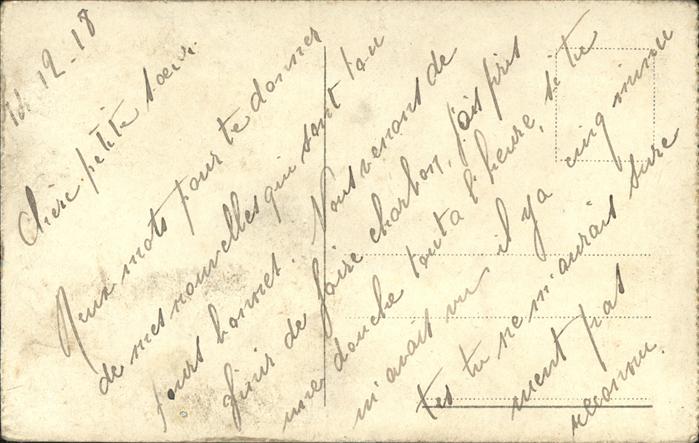 14-12-18
Chère petite sœur.
Deux mots pour te donner
de mes nouvelles qui sont tou
jours bonnes. Nous venons de
finir de faire charbon, j'ais pris
une douche tout a l'heure, si tu
m'avais vu, il y a cinq minu
tes tu ne m'aurais sure
ment pas
reconnu.